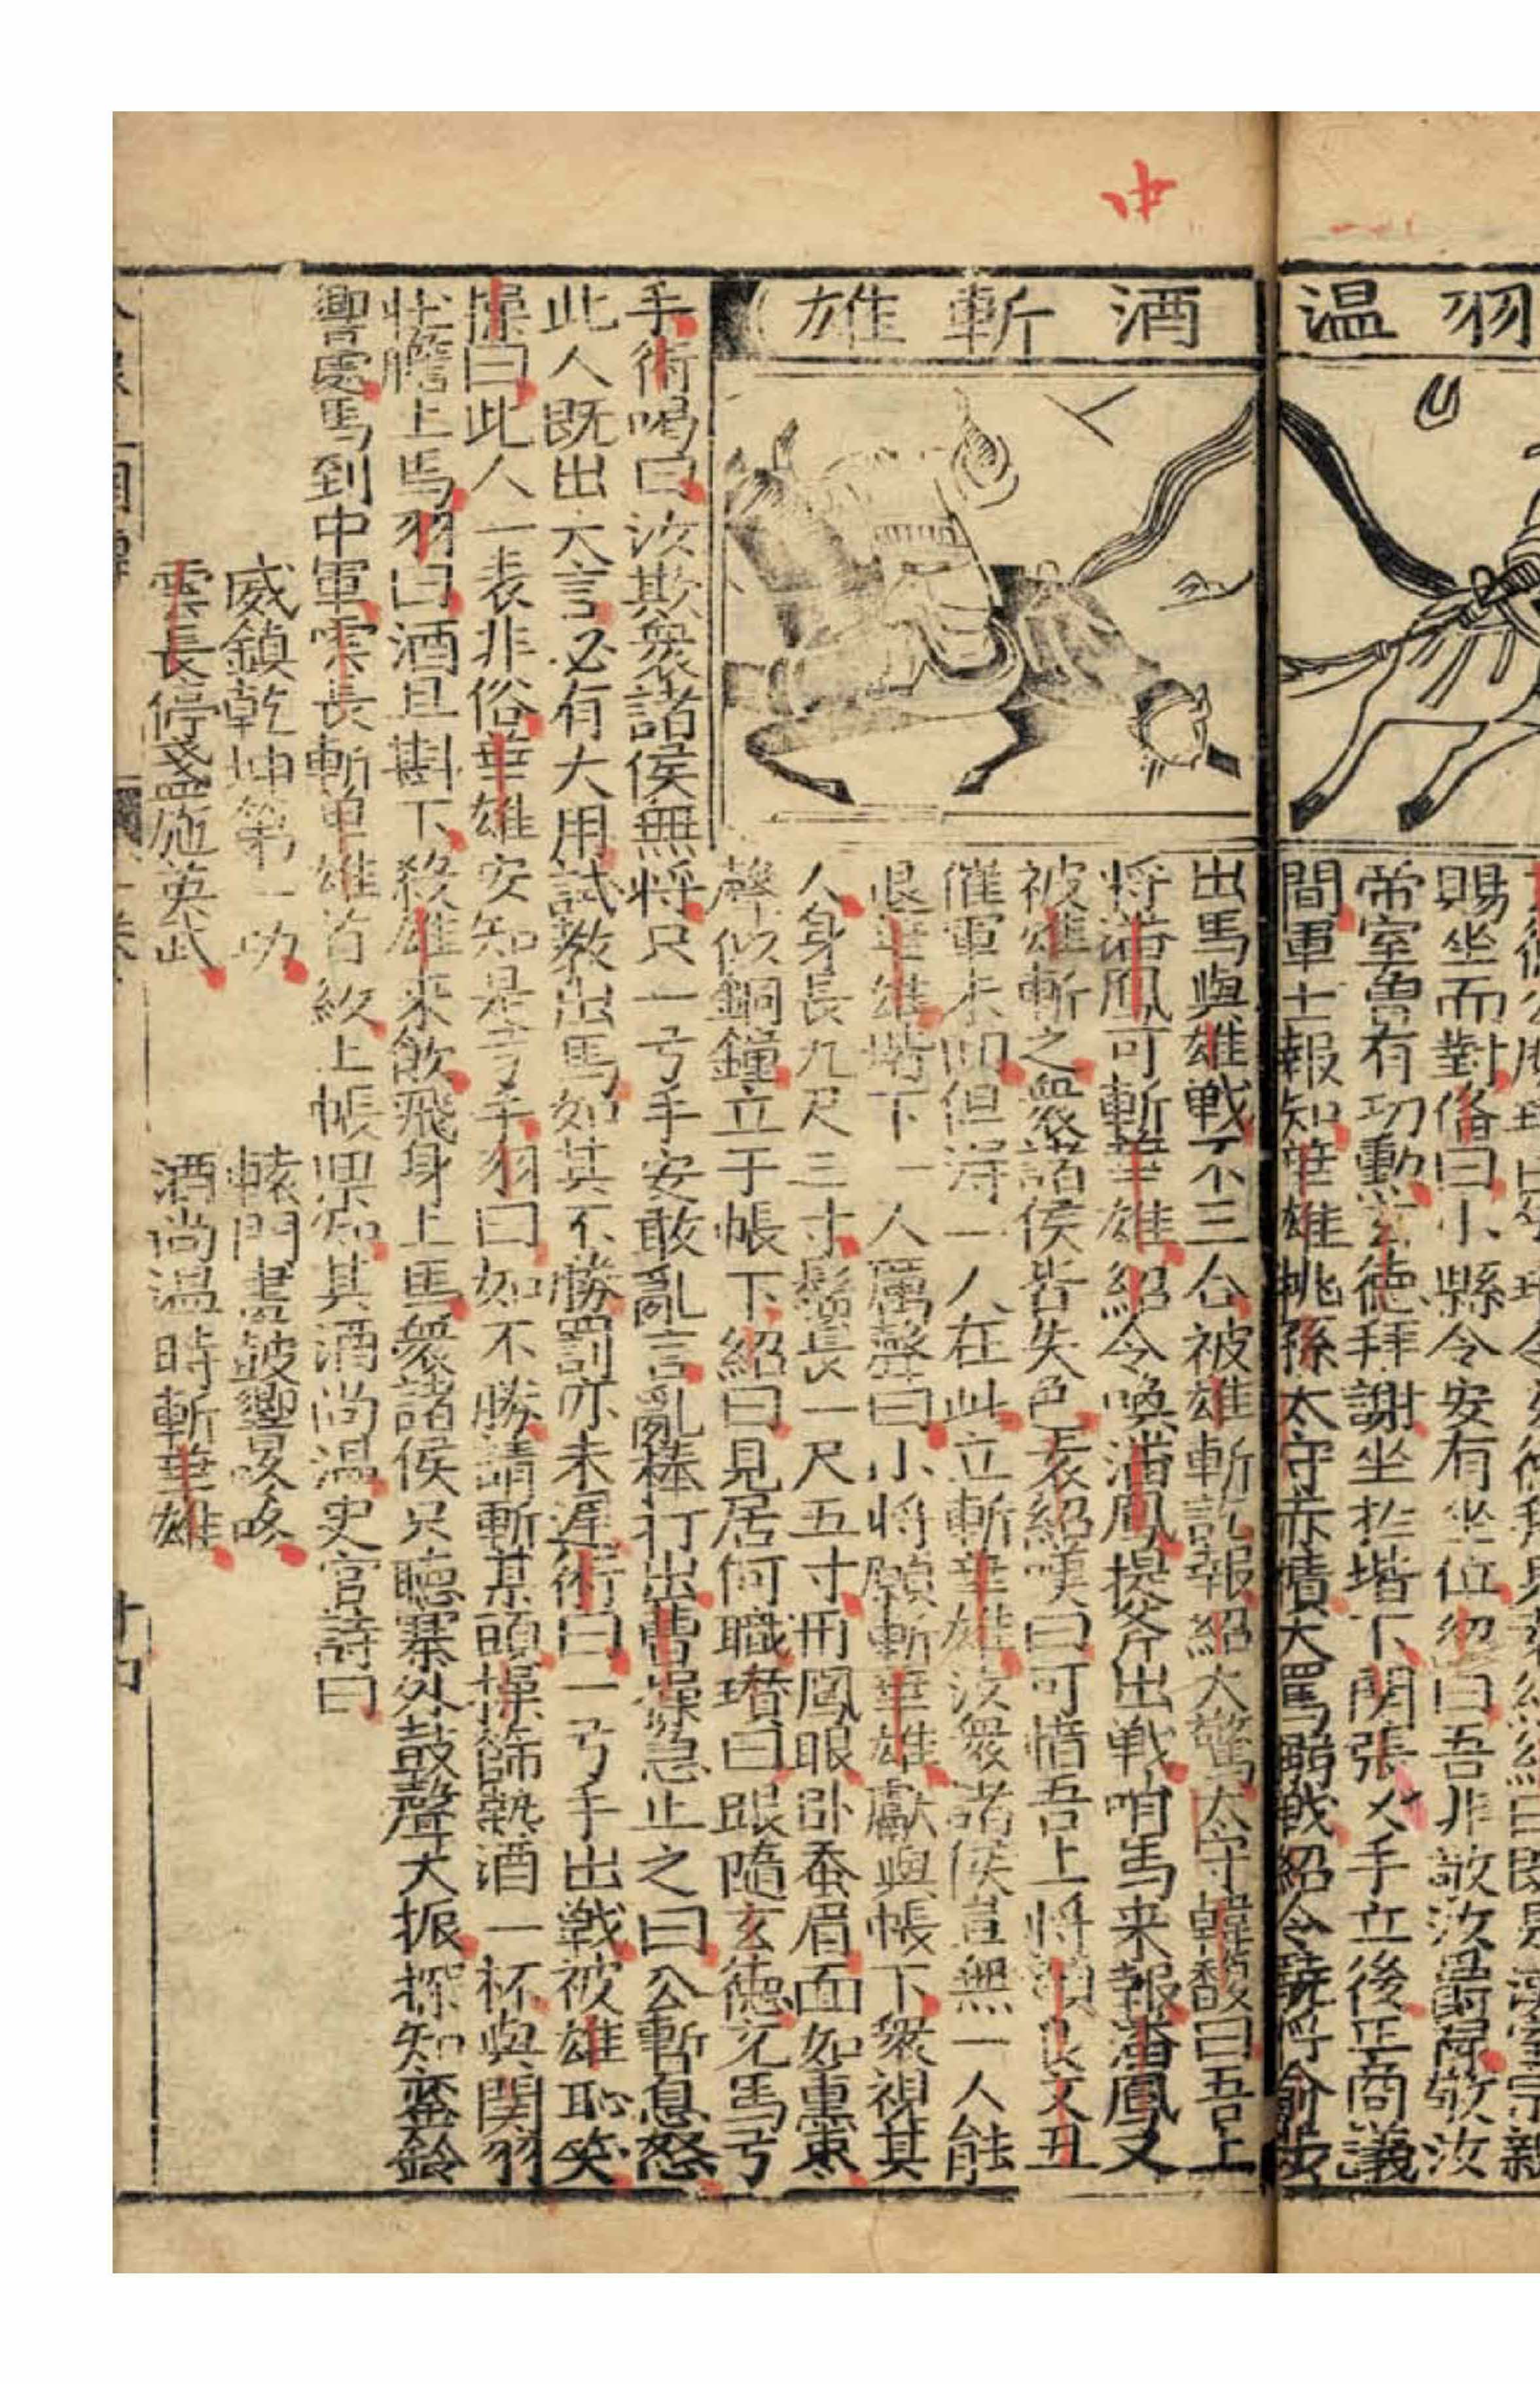 中
羽溫
酒斬雄
賜坐而對俻曰小縣令安有坐位紹曰吾非敬汝爵歸敬汝
帝室曽有功勳玄德拜謝坐於堦下関張义手立後正商議
間軍士報知華雄挑孫太守赤幘大罵搦戦紹令驍将俞涉
出馬與雄戦不三合被雄斬訖報紹大驚太守韓馥曰吾上
将潘鳳可斬華雄紹令喚潘鳳提斧出戦哨馬来報潘鳳又
被雄斬之衆諸侯皆失色袁紹嘆曰可惜吾上将顔良文丑
催軍未囬但得一人在此立斬華雄汝衆諸侯豈無一人能
退華雄堦下一人厲聲曰小将願斬華雄獻與帳下衆視其
人身長九尺三寸鬚長一尺五寸丹鳳眼卧蚕眉面如重棗
聲似銅鐘立于帳下紹曰見居何職瓚曰跟隨玄德充馬弓
手術喝曰汝欺衆諸侯無将只一弓手安敢亂言亂棒打出曹操急止之曰公暫息怒
此人既出大言必有大用試教出馬如其不勝罰亦未遲術曰一弓手出戦被雄恥笑
操曰此人一表非俗華雄安知是弓手羽曰如不勝請斬某頭操篩熱酒一杯與関羽
壮膽上馬羽曰酒且斟下殺雄来飲飛身上馬衆諸侯只聴寨外鼓聲大振探知鸞鈴
響處馬到中軍雲長斬華雄首級上帳果知其酒尚温史官詩曰
威鎮乾坤第一功 轅門畫皷響鼕鼕
雲長停盞施英武 酒尚温時斬華雄